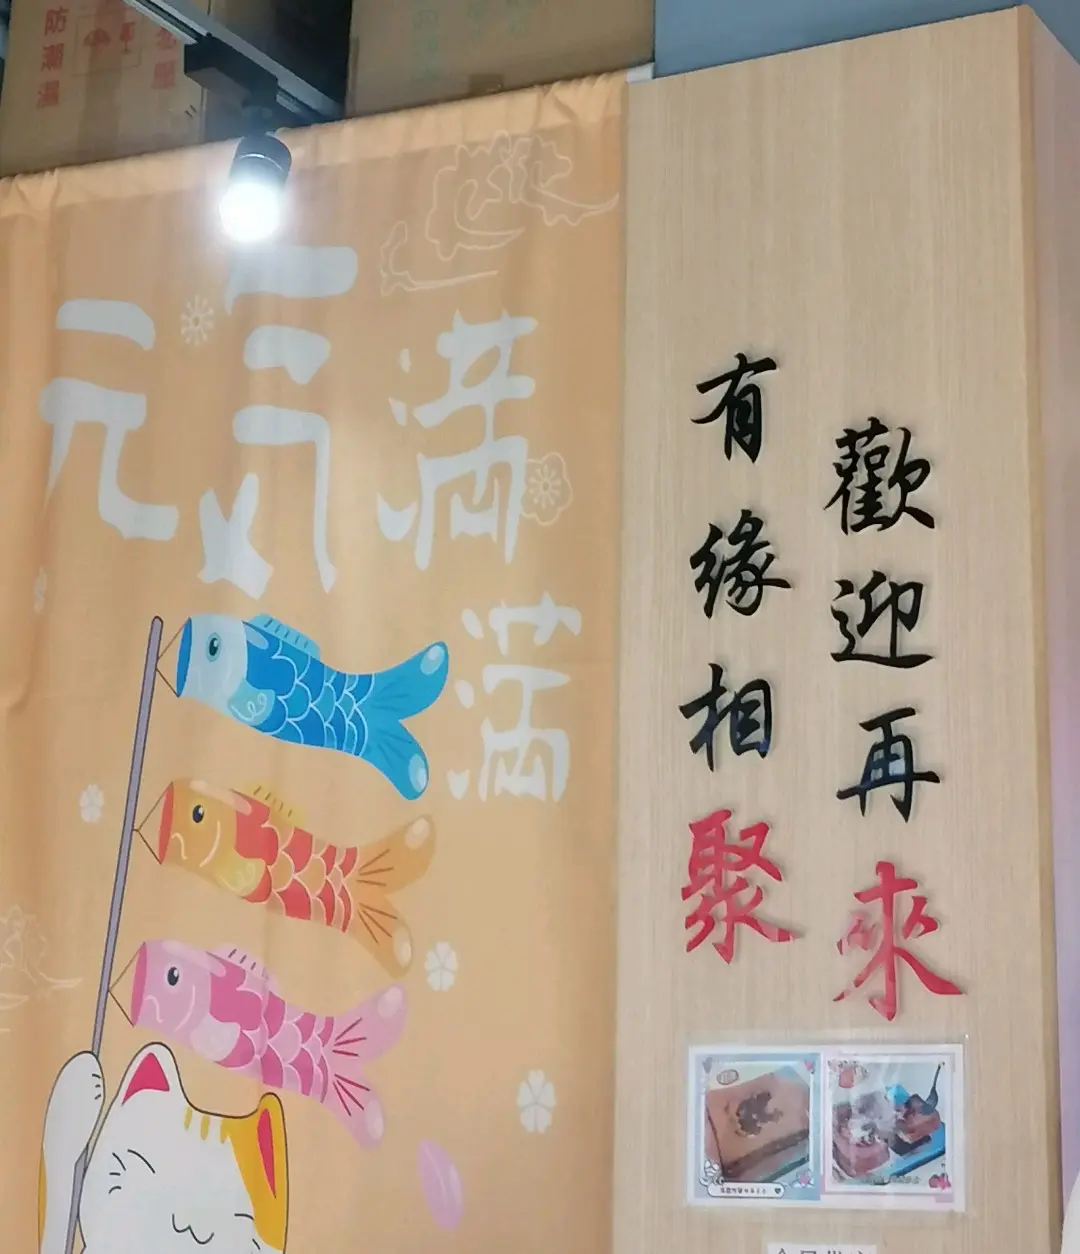 防潮濕
元氣滿
滿
歡迎再來
有緣相聚